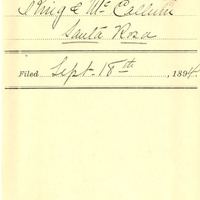 King & McCallum
Santa Rosa
Filed Sept. 18th, 1894.